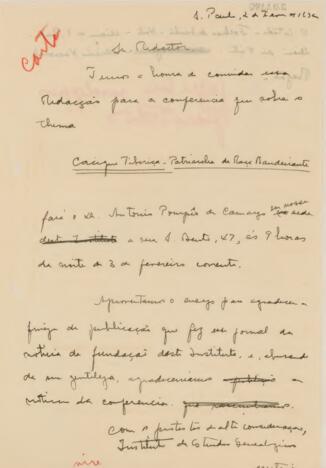 S. Paulo, 2 de
Carta
Sr. Redactor
Temos a honra de convidar essa
Redacção para a conferencia que sobre o
thema
Cacique Tibiriçá - Patriarcha da Raça Bandeirante
fará o Dr. Antonio Pompêo de Camargo em nossa séde
deste Instituto a rua S. Bento, 47, ás 9 horas
da noite de 3 de fevereiro corrente.
Aproveitamos o ensejo para agradecer a
fineza da publicação que fez seu jornal da
noticia da fundação deste Instituto, e, abusando
de sua gentileza, agradeceriamos a
noticia da conferencia.
Com os protestos de alta consideração,
Instituto de Estudos Genealogicos